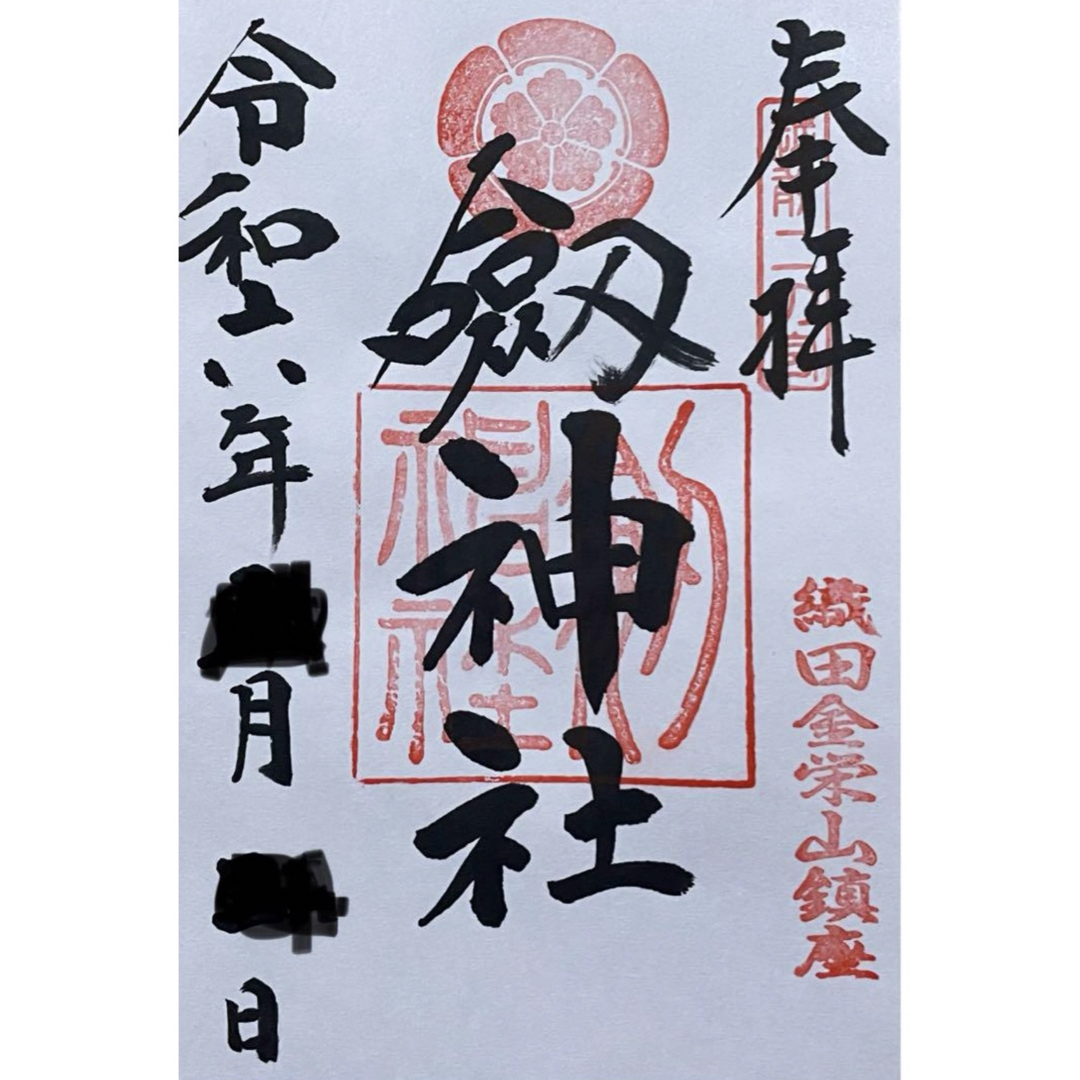 奉拝
越前二の宮
織田金栄山鎮座
劔神社
劔神社
令和六年 月 日